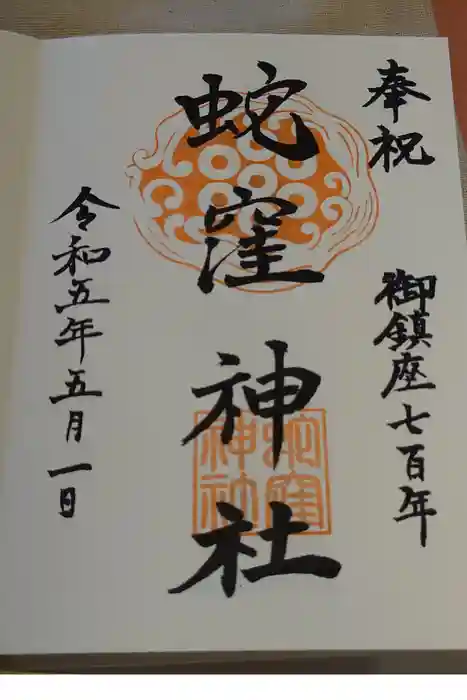 奉祝
御鎮座七百年
蛇窪神社
蛇窪
神社
令和五年五月一日